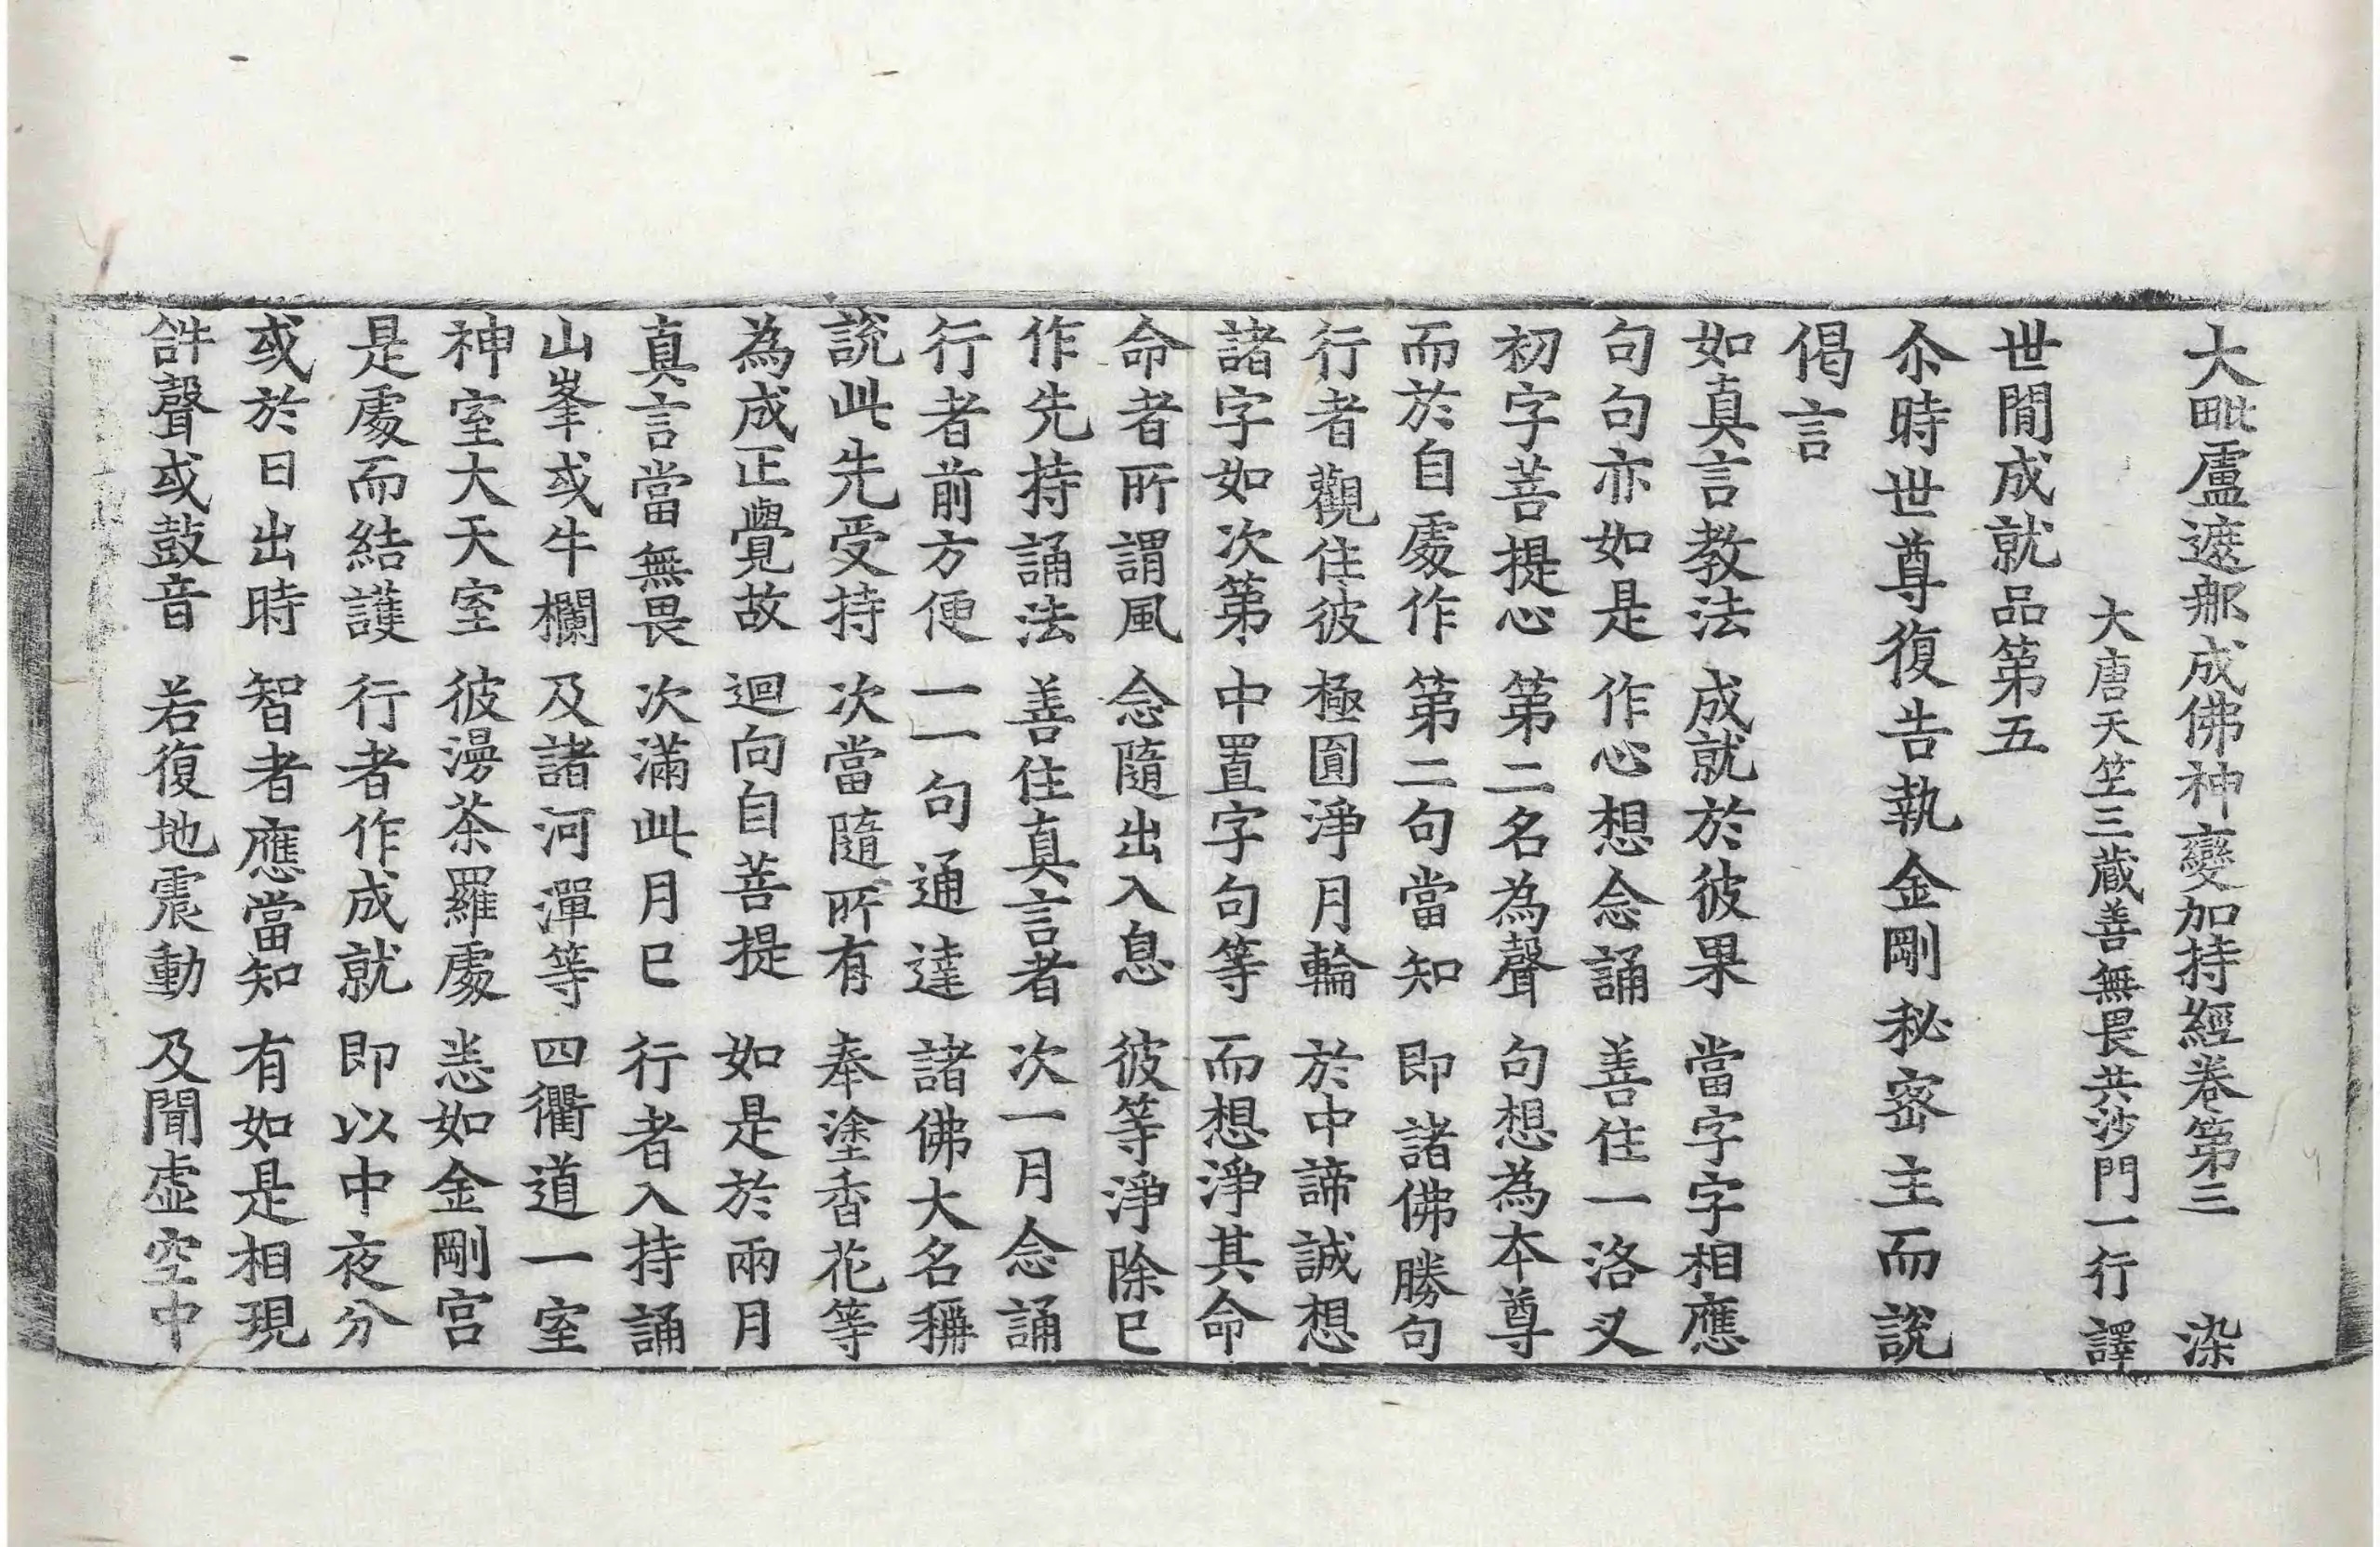 大毗盧遮那成佛神變加持經卷第三 染
大唐天竺三藏善無畏共沙門一行譯
世間成就品第五
尒時世尊復告執金剛秘密主而說
偈言
如真言教法 成就於彼果 當字字相應
句句亦如是 作心想念誦 善住一洛叉
初字菩提心 第二名為聲 句想為本尊
而於自處作 第二句當知 即諸佛勝句
行者觀住彼 極圓淨月輪 於中諦誠想
諸字如次第 中置字句等 而想淨其命
命者所謂風 念隨出入息 彼等淨除已
作先持誦法 善住真言者 次一月念誦
行者前方便 一一句通達 諸佛大名稱
說此先受持 次當隨所有 奉塗香花等
為成正覺故 迴向自菩提 如是於兩月
真言當無畏 次滿此月已 行者入持誦
山峯或牛欄 及諸河潬等 四衢道一室
神室大天室 彼漫荼羅處 悉如金剛宮
是處而結護 行者作成就 即以中夜分
或於日出時 智者應當知 有如是相現
𤙖聲或鼓音 若復地震動 及聞虛空中